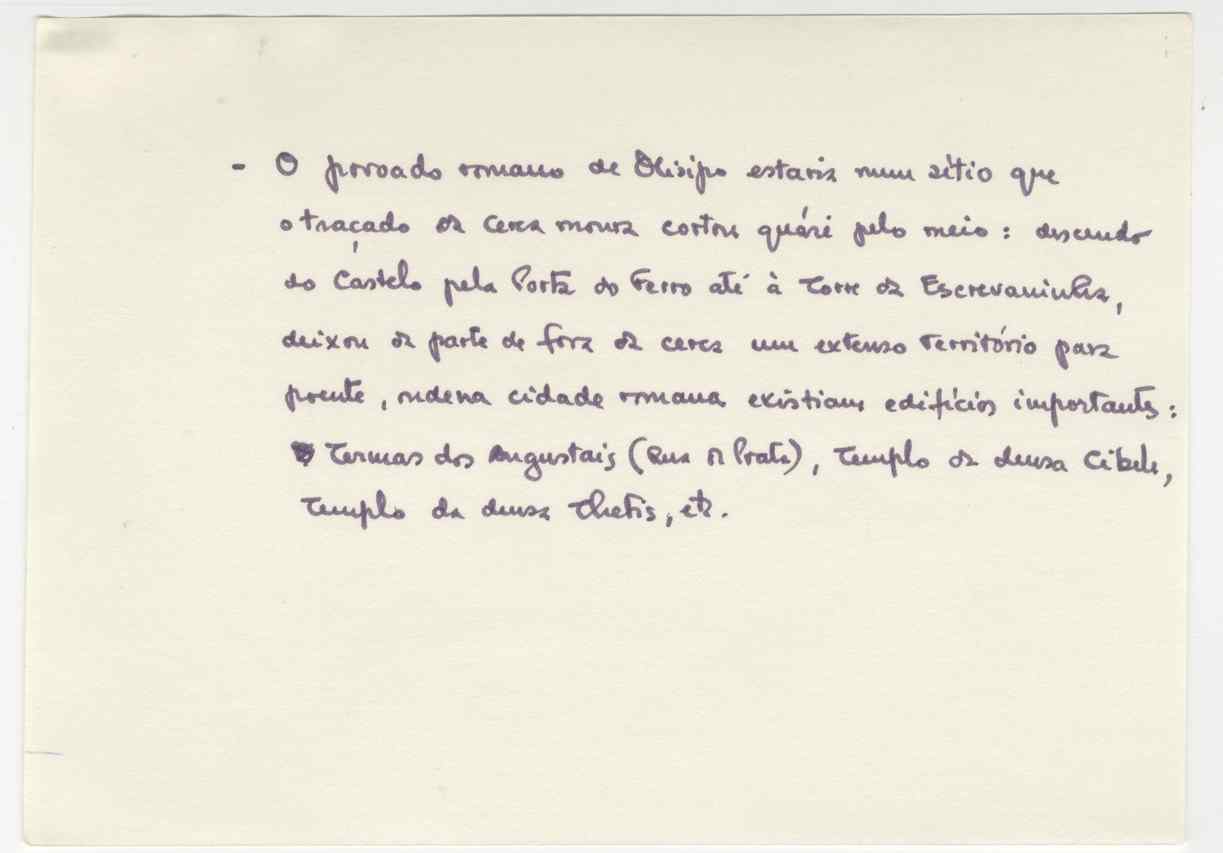 - O povoado romano de Olisipo estaria num sítio que
o traçado da cerca moura cortou quási pelo meio: descendo
do Castelo pela Porta do Ferro até à Torre da Escrevaninha,
deixou da parte de fora da cerca um extenso território para
poente, onde na cidade romana existiam edifícios importantes:
Termas dos Augustais (Rua da Prata), Templo da deusa Cibele,
Templo da deusa Thetis, etc.